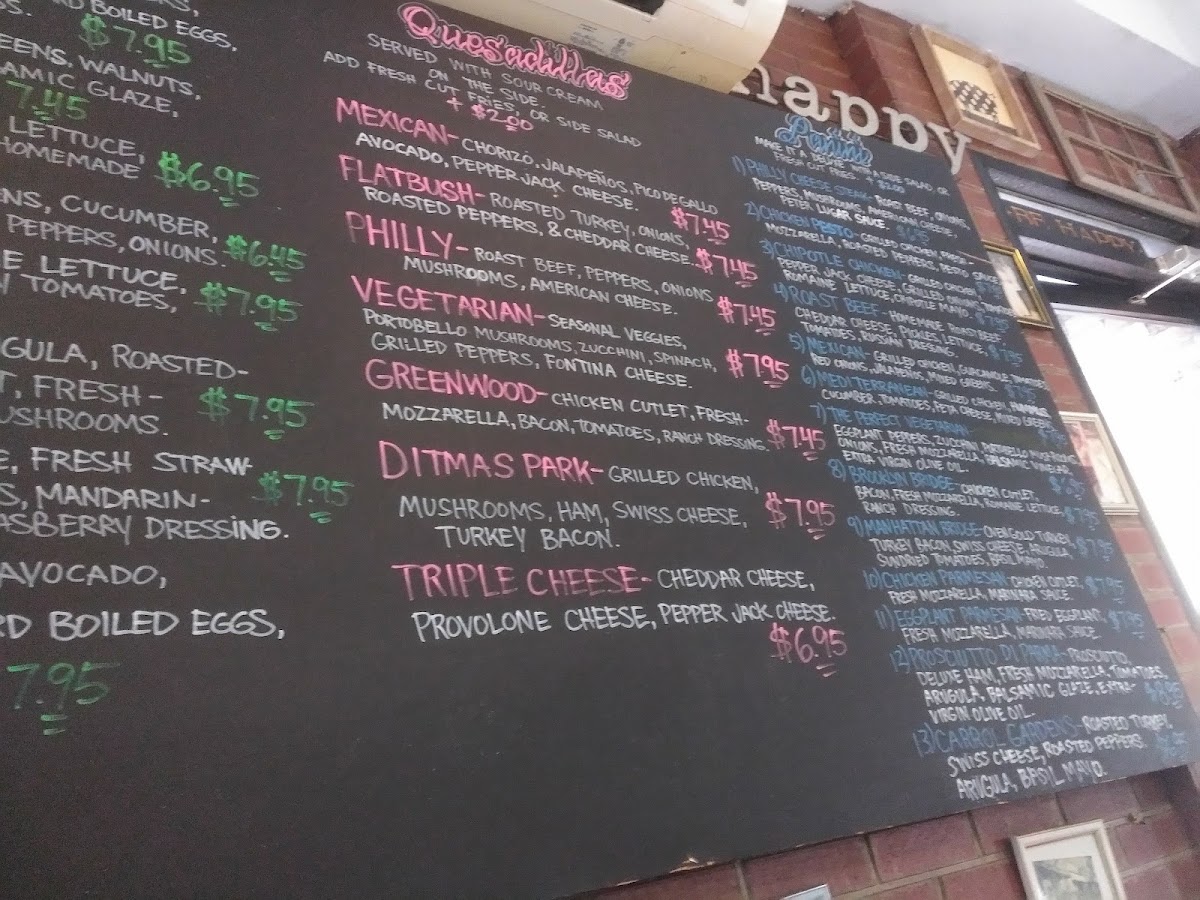 BOILED EGGS,
$7.95
EENS, WALNUTS,
AMIC GLAZE,
7.45
LETTUCE,
HOMEMADE $6.95
ENS, CUCUMBER,
PEPPERS, ONIONS. $6.45
E LETTUCE,
TOMATOES, $7.95
GULA, ROASTED-
T, FRESH-
USHROOMS. $7.95
E, FRESH STRAW-
S, MANDARIN- $7.95
ASBERRY DRESSING.
AVOCADO,
RD BOILED EGGS,
7.95
Quesadillas
SERVED WITH SOUR CREAM
ON THE SIDE.
ADD FRESH CUT FRIES, OR SIDE SALAD
+ $2.00
MEXICAN- CHORIZÓ, JALAPEÑOS, PICO DE GALLO
AVOCADO, PEPPER JACK CHEESE. $7.45
FLATBUSH- ROASTED TURKEY, ONIONS,
ROASTED PEPPERS, & CHEDDAR CHEESE. $7.45
PHILLY- ROAST BEEF, PEPPERS, ONIONS
MUSHROOMS, AMERICAN CHEESE. $7.45
VEGETARIAN- SEASONAL VEGGIES,
PORTOBELLO MUSHROOMS, ZUCCHINI, SPINACH,
GRILLED PEPPERS, FONTINA CHEESE. $7.95
GREENWOOD- CHICKEN CUTLET, FRESH-
MOZZARELLA, BACON, TOMATOES, RANCH DRESSING. $7.45
DITMAS PARK- GRILLED CHICKEN,
MUSHROOMS, HAM, SWISS CHEESE, $7.95
TURKEY BACON.
TRIPLE CHEESE- CHEDDAR CHEESE,
PROVOLONE CHEESE, PEPPER JACK CHEESE.
$6.95
happy
Panini
MAKE IT A DELUXE WITH A SIDE SALAD OR
FRESH CUT FRIES. + $2.00
1) PHILLY CHEESE STEAK- ROAST BEEF, ONIONS
PEPPERS, MUSHROOMS, AMERICAN CHEESE,
PETER LUGAR SAUCE.
2) CHICKEN PESTO- GRILLED CHICKEN, FRESH-
MOZZARELLA, ROASTED PEPPERS, PESTO SAUCE
3) CHIPOTLE CHICKEN- GRILLED CHICKEN,
PEPPER JACK CHEESE, GRILLED ONIONS, TOMATOES
ROMAINE LETTUCE, CHIPOTLE MAYO. $7.95
4) ROAST BEEF- HOMEMADE ROAST BEEF,
CHEDDAR CHEESE, PICKLES, LETTUCE,
TOMATOES, RUSSIAN DRESSING. $7.95
5) MEXICAN- GRILLED CHICKEN, GUACAMOLE, TOMATOES
RED ONIONS, JALAPEÑOS, MIXED GREENS.
6) MEDITERRANEAN- GRILLED CHICKEN, HUMMUS
CUCUMBER, TOMATOES, FETA CHEESE, MIXED GREENS
7) THE PERFECT VEGETARIAN-
EGGPLANT, PEPPERS, ZUCCHINI, PORTOBELLO MUSHROOMS
ONIONS, FRESH MOZZARELLA, BALSAMIC VINEGAR,
EXTRA VIRGIN OLIVE OIL.
8) BROOKLYN BRIDGE- CHICKEN CUTLET,
BACON, FRESH MOZZARELLA, ROMAINE LETTUCE,
RANCH DRESSING. $7.95
9) MANHATTAN BRIDGE- OVENGOLD TURKEY,
TURKEY BACON, SWISS CHEESE, ARUGULA, $7.95
SUNDRIED TOMATOES, BASIL MAYO.
10) CHICKEN PARMESAN- CHICKEN CUTLET, $7.95
FRESH MOZZARELLA, MARINARA SAUCE.
11) EGGPLANT PARMESAN- FRIED EGGPLANT, $7.95
FRESH MOZZARELLA, MARINARA SAUCE.
12) PROSCIUTTO DI PARMA- PROSCIUTTO,
DELUXE HAM, FRESH MOZZARELLA, TOMATOES,
ARUGULA, BALSAMIC GLAZE, EXTRA-
VIRGIN OLIVE OIL.
13) CARROL GARDENS- ROASTED TURKEY,
SWISS CHEESE, ROASTED PEPPERS.
ARUGULA, BASIL MAYO.
HAPPY